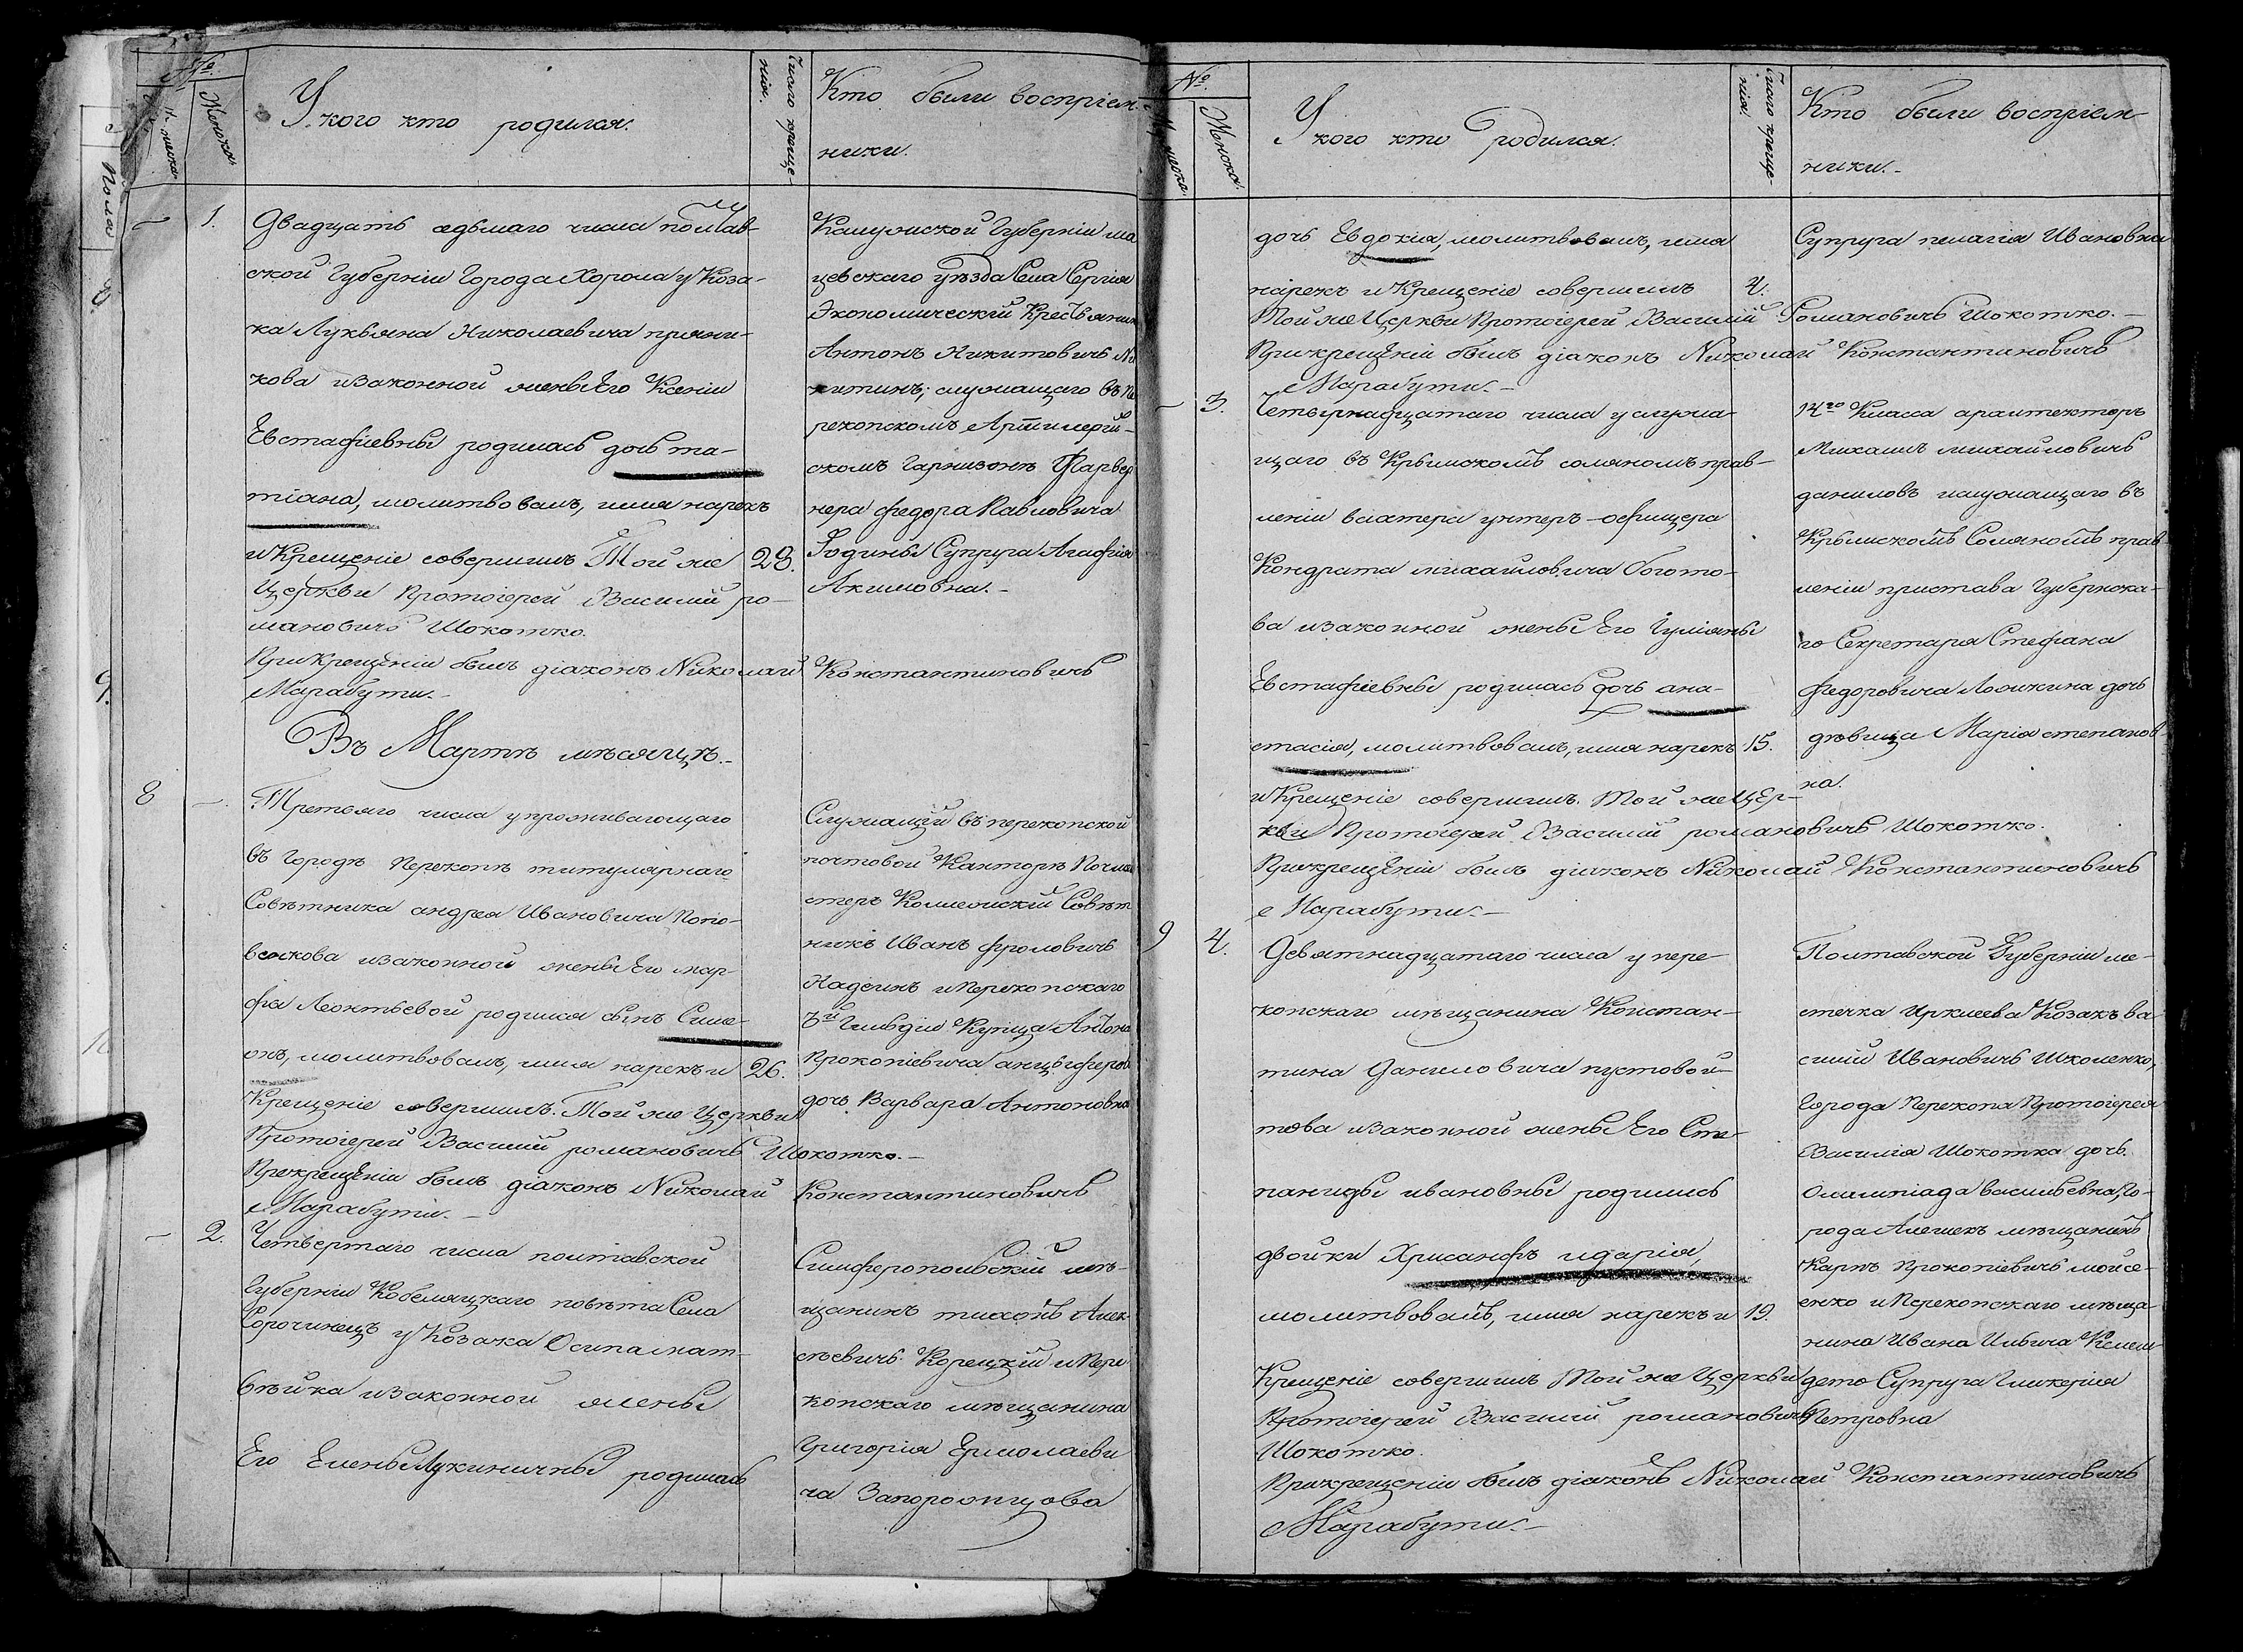 №.
Мужеска
Женска
У кого кто родился.
Число креще-
нія.
Кто были воспріем-
ники.
1.
Двадцать седьмаго числа Полтав-
ской Губерніи Города Хорола у Коза-
ка Лукьяна Николаевича пряни-
кова изаконной жены Его Ксеніи
Евстафіевны родилась дочь та-
тіана, молитвовалъ, имя нарекъ
и Крещеніе совершилъ Той же
28.
Церкви Протоіерей Василий ро-
мановичъ Шокотко.
При Крещеніи былъ діаконъ Николай Константиновичъ
Марабути.
Калужской Губерніи
цевского уѣзда Села Сергія
Экономическій Крестьянин
Антонъ Никитовичъ Ни
китинъ; служащаго въ Пе
рекопскомъ Артиллерій-
скомъ Гарнизонѣ
нера федора Павловича
Годины Супруга Агафія
Акимовна.
Въ Мартѣ мѣсяцѣ.
8
Третьяго числа упроживающаго
въ Городѣ Перекопѣ титулярнаго
Совѣтника андрея Ивановича Попо-
изаконной жены Его мар-
фы Леонтьевой родился сынъ Симе-
онъ, молитвовалъ, имя нарекъ и
26.
Крещеніе совершилъ. Той же Церкви
Протоіерей Василий романовичъ Шокотко.
При крещеніи былъ діаконъ Николай Константиновичъ
Марабути.
Служащій въ перекопской
почтовой Канторѣ Почтм
стеръ Коллежскій Совѣт
никъ Иванъ фроловичъ
Надеинъ и Перекопскаго
3й Гильдіи Купца Антона
Прокопіевича анцыферов
дочь Варвара Антоновна
2.
Четвертаго числа полтавской
Губерніи Кобеляцкаго повѣта Села
Сорочинецъ у Козака Осипа мат-
вѣйка изаконной жены
Его Елены Лукиничны родилась
Симферопольскій мѣ-
щанинъ тихонъ Алек-
сѣевичъ Корецкій и Пере
копскаго мѣщанина
Григорія Ермолаеви
ча Запорожцова
№.
Женска.
У кого кто родился.
Число креще-
нія.
Кто были воспріем-
ники.
дочь Евдокія, молитвовалъ, имя
нарекъ и Крещеніе совершилъ
4.
Той же Церкви Протоіерей Василий Романовичъ Шокотко.
При крещеніи былъ діаконъ Николай Константиновичъ
Марабути.
Супруга пелагія Ивановна
3.
Четырнадцатаго числа у служа-
щаго въ Крымскомъ соляномъ прав-
леніи вахтера унтеръ-офицера
Кондрата михайловича богото-
ва изаконной жены Его Гуліяны
Евстафіевны родилась дочь ана-
стасія, молитвовалъ, имя нарекъ
15.
и Крещеніе совершилъ. Той же Цер-
кви Протоіерей Василий романовичъ Шокотко.
При крещеніи былъ діаконъ Николай Константиновичъ
Марабути.
14го Класса архитекторъ
Михаилъ михайловичъ
даниловъ ислужащаго въ
Крымскомъ Соляномъ прав-
леніи пристава Губернска-
го Секретаря Стефана
федоровича дочь
дѣвица Марія степанов-
на.
9
4.
Девятнадцатаго числа у пере-
копскаго мѣщанина Констан-
тина Даниловича пустовой-
това изаконной жены Его Сте-
паниды ивановны родились
двойки Хрисанфъ идарія,
молитвовалъ, имя нарекъ и
19.
Крещеніе совершилъ Той же Церкви
Протоіерей Василий романовичъ
Шокотко.
При крещеніи былъ діаконъ Николай Константиновичъ
Марабути.
Полтавской Губерніи ме-
стечка Ирклеева Козакъ ва-
силий Ивановичъ Школенко,
Города Перекопа Протоіерея
Василія Шокотка дочь
Олимпіада васильевна, Го-
рода Алешекъ мѣщанинъ
Карпъ Прокопіевичъ мойсе-
енко и Перекопскаго мѣща-
нина Ивана Ильича
Супруга Гликерія
Петровна